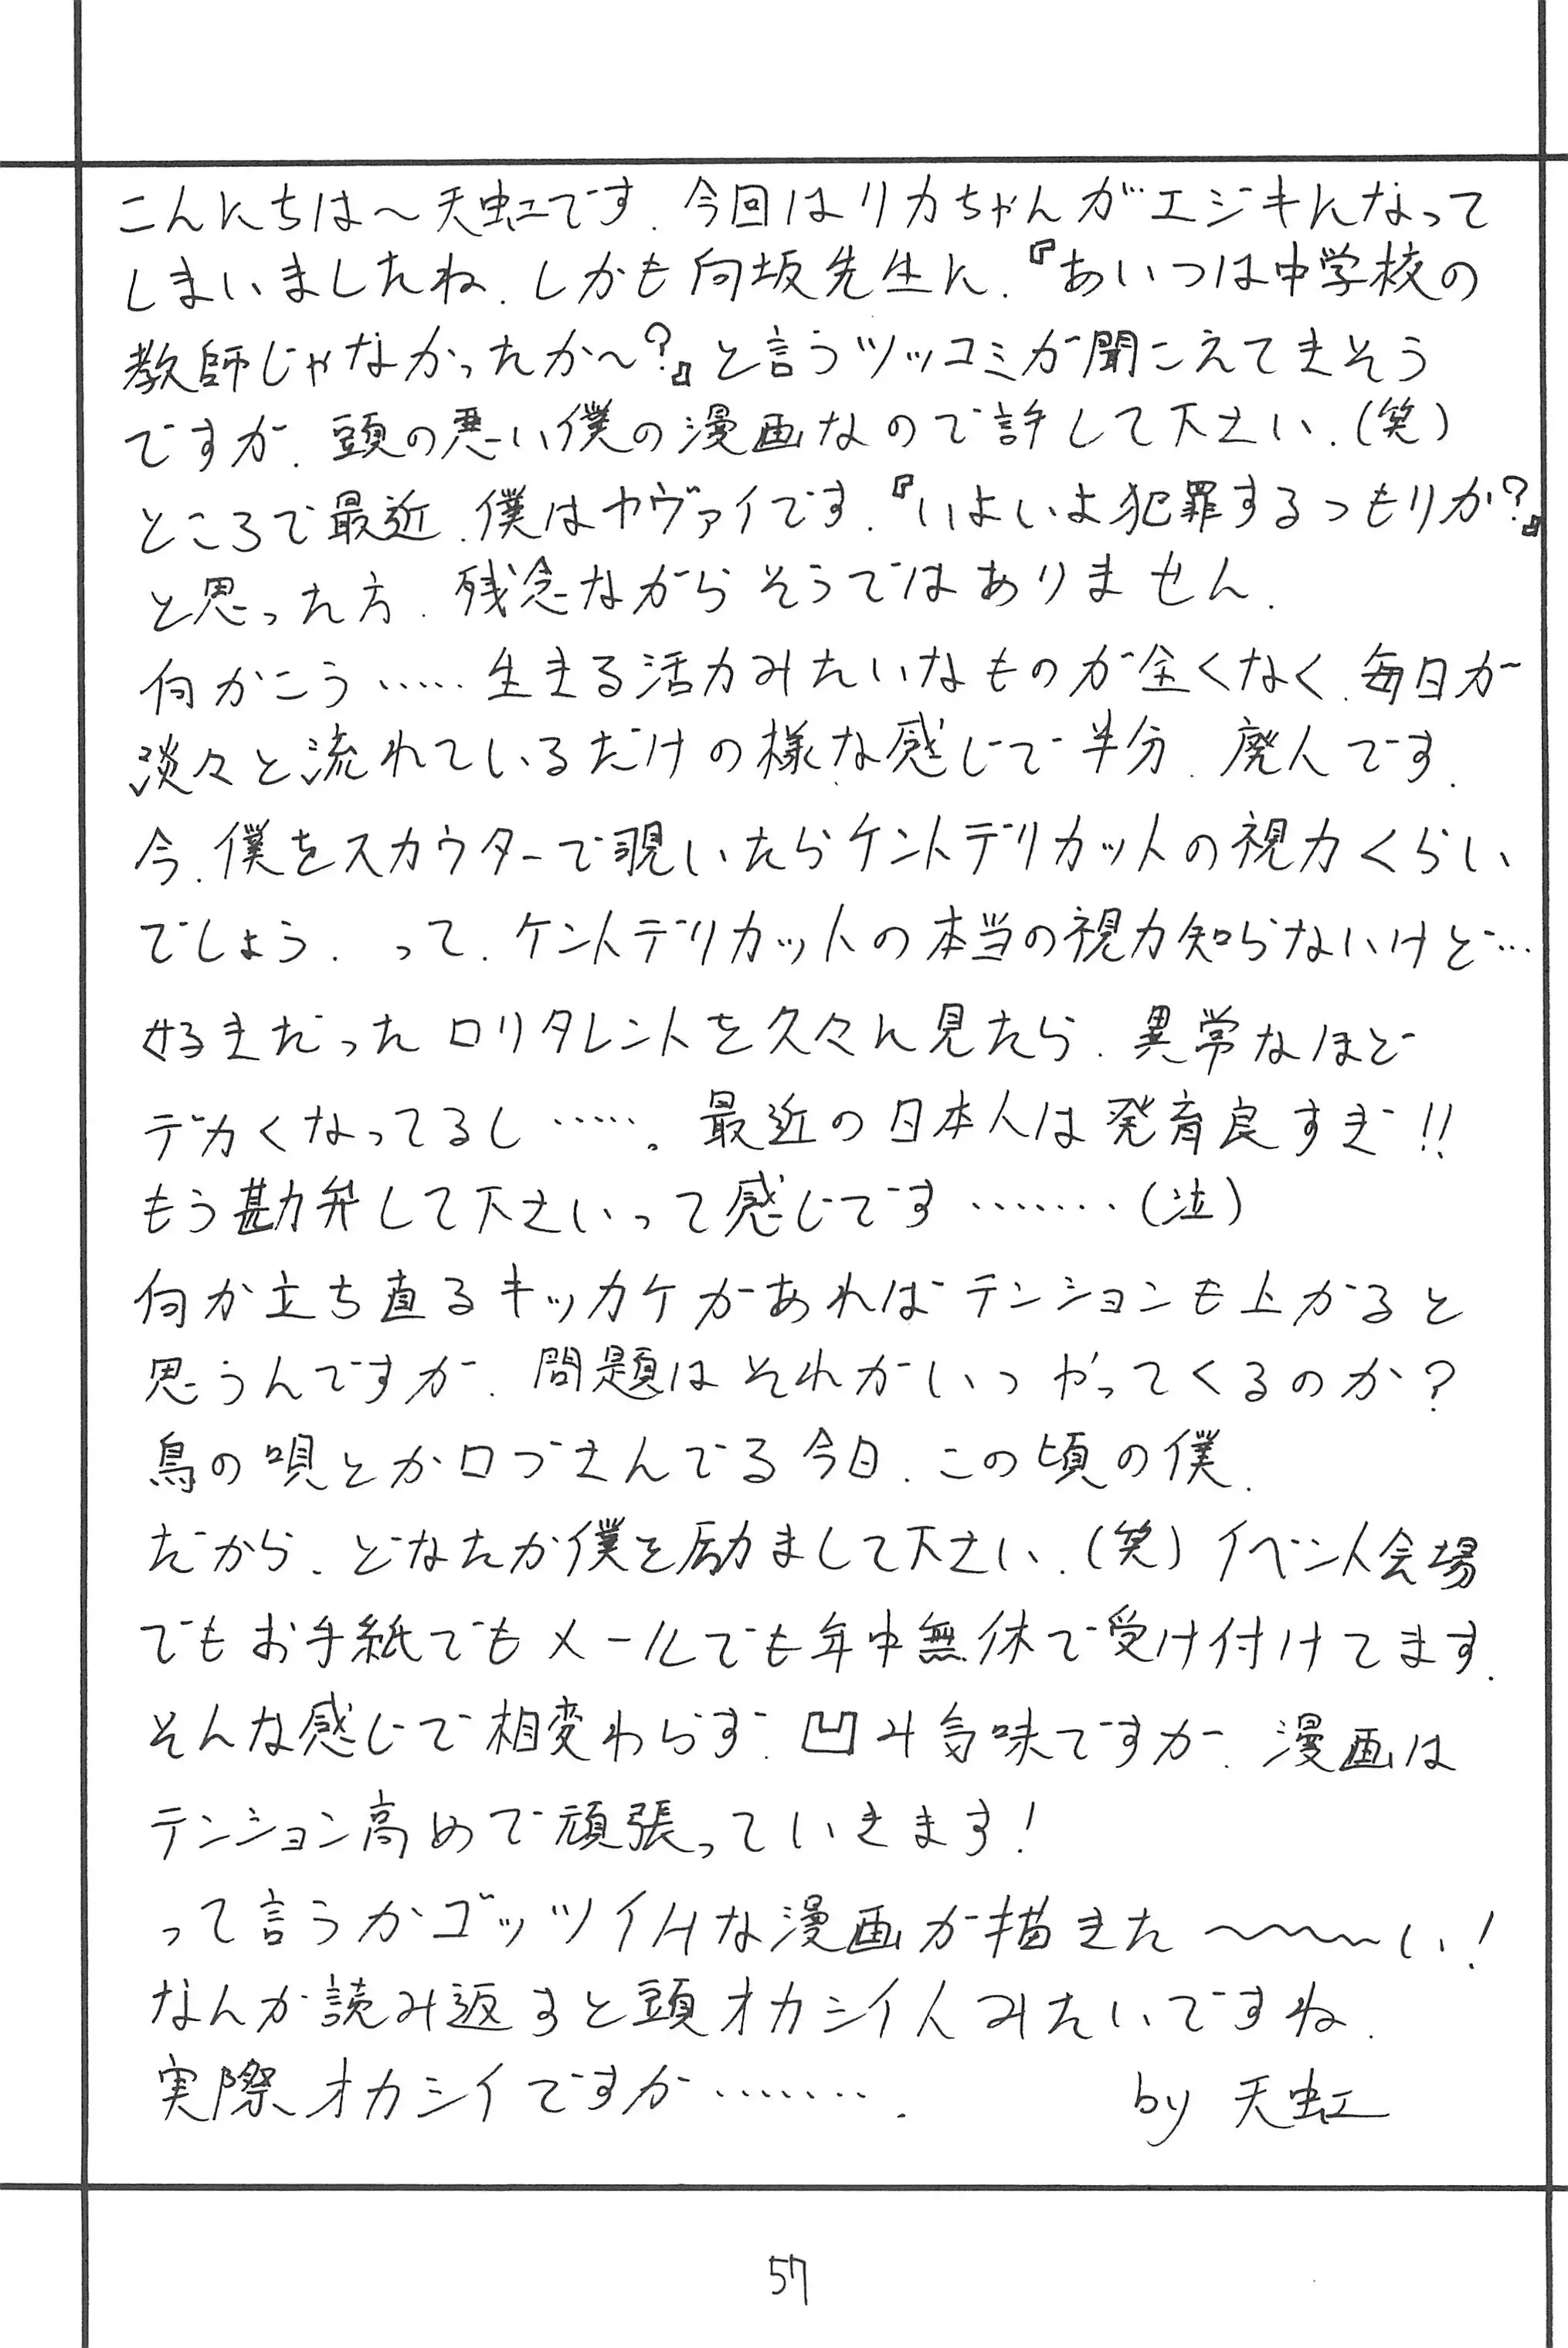 こんにちは～天虹です.今回はリカちゃんがエジキになって
しまいましたね.しかも向坂先生に.『あいつは中学校の
教師じゃなかったか～?』と言うツッコミが聞こえてきそう
ですが.頭の悪い僕の漫画なので許して下さい.(笑)
ところで最近.僕はヤヴァイです.『いよいよ犯罪するつもりか?』
と思った方.残念ながらそうではありません.
何かこう……生きる活力みたいなものが全くなく.毎日が
淡々と流れているだけの様な感じで半分.廃人です.
今.僕をスカウターで覗いたらケントデリカットの視力くらい
でしょう.って.ケントデリカットの本当の視力知らないけど…
好きだったロリタレントを久々に見たら.異常なほど
デカくなってるし……。最近の日本人は発育良すぎ!!
もう勘弁して下さいって感じです………(泣)
何か立ち直るキッカケがあればテンションも上がると
思うんですが.問題はそれがいつやってくるのか?
鳥の唄とか口づさんでる今日.この頃の僕.
だから.どなたか僕を励まして下さい.(笑)イベント会場
でもお手紙でもメールでも年中無休で受け付けてます.
そんな感じで相変わらず.凹み気味ですが.漫画は
テンション高めで頑張っていきます!
って言うかゴッツイHな漫画が描きた～～～～い!
なんか読み返すと頭オカシイ人みたいですね.
実際オカシイですが…….
by 天虹
57